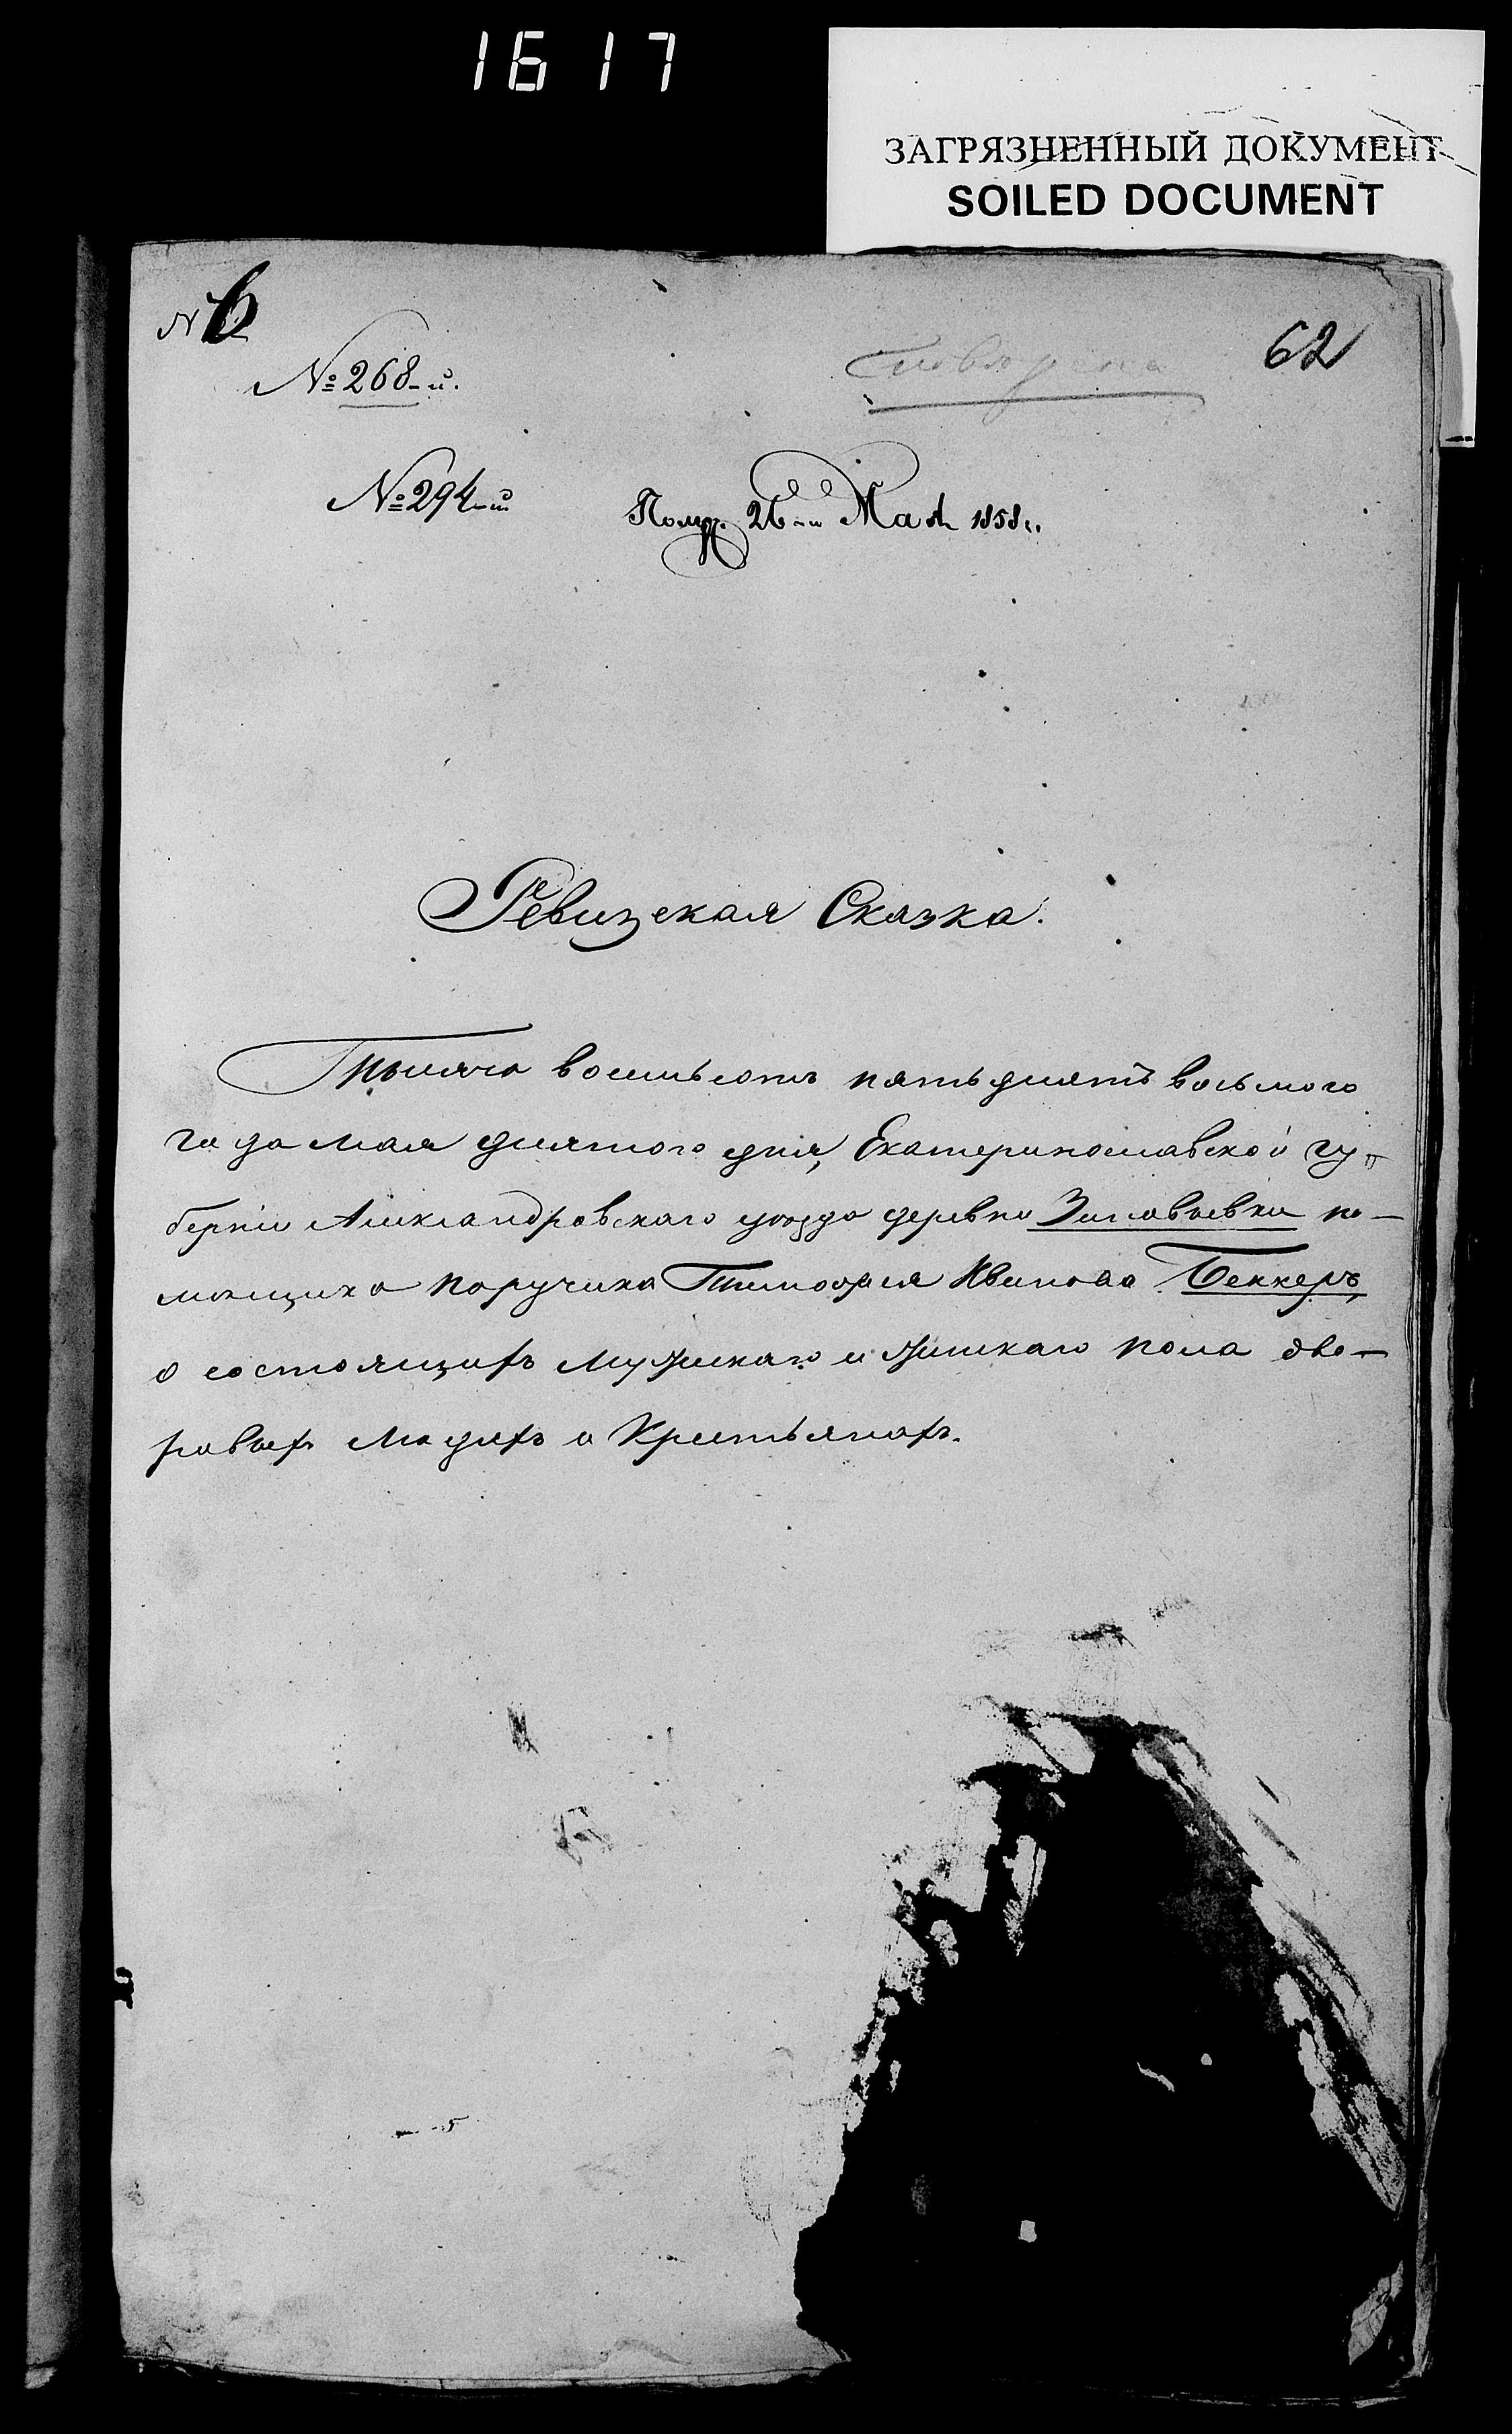 1617
ЗАГРЯЗНЕННЫЙ ДОКУМЕНТ
SOILED DOCUMENT
№ 6
62
№ 268-й.
№ 294-й
Получ. 26-го Мая 1858 г.
Ревизская Сказка.
Тысяча восемьсотъ пятьдесятъ восьмого
года мая десятого дня, Екатеринославской гу„
берніи Александровскаго уѣзда деревни Зиновьевки по-
мѣщика поручика Тимофея Иванова Беккеръ,
о состоящихъ мужескаго и женскаго пола дво-
ровыхъ людехъ и Крестьянахъ.